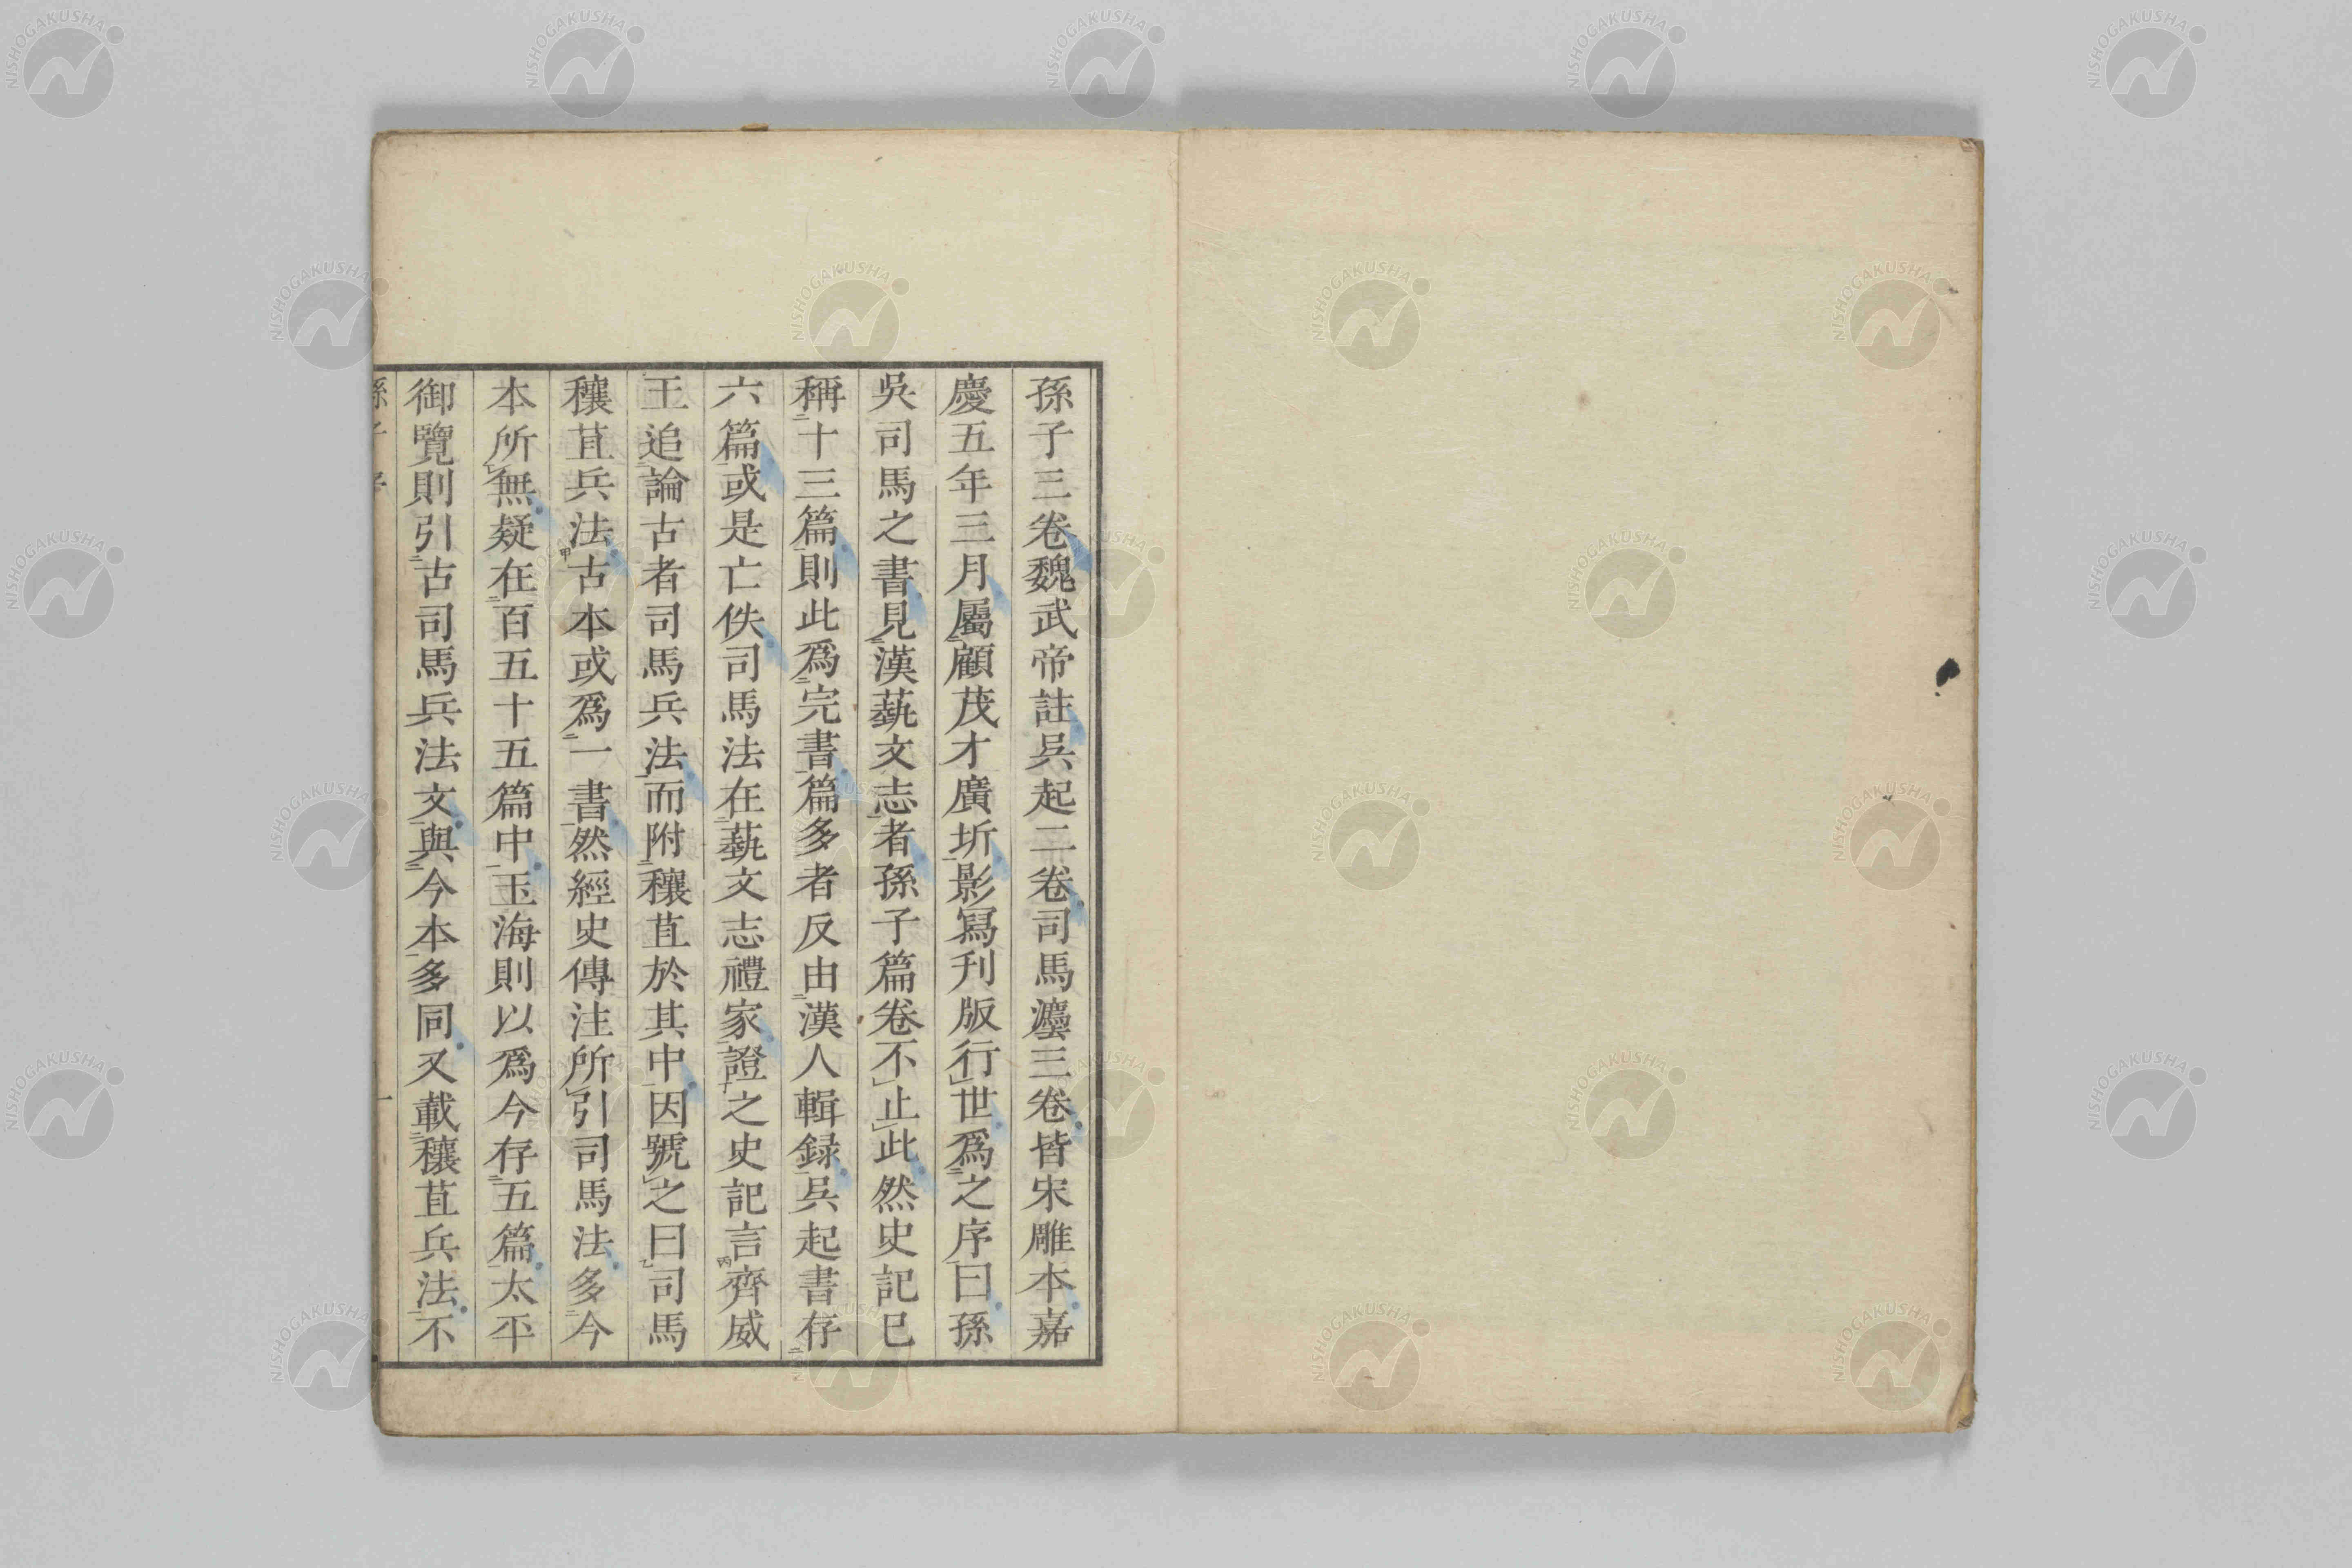 孫子三卷魏武帝註吳起二卷司馬灋三卷皆宋雕本嘉
慶五年三月屬顧茂才廣圻影寫刊版行世爲之序曰孫
吳司馬之書見漢藝文志者孫子篇卷不止此然史記已
稱十三篇則此爲完書篇多者反由漢人輯録吳起書存
六篇或是亡佚司馬法在藝文志禮家證之史記言齊威
王追論古者司馬兵法而附穰苴於其中因號之曰司馬
穰苴兵法古本或爲一書然經史傳注所引司馬法多今
本所無疑在百五十五篇中玉海則以爲今存五篇太平
御覽則引古司馬兵法文與今本多同又載穰苴兵法不
NISHOGAKUSHA